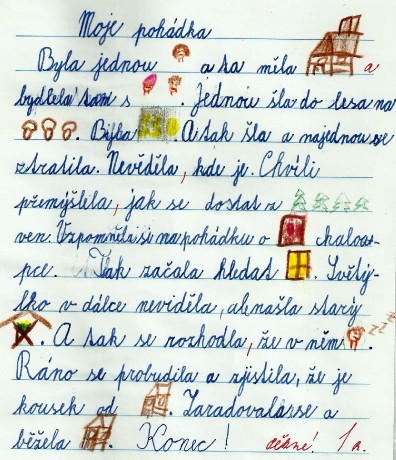 Moje pohádka
Byla jednou a ta měla a
bydlela tam s . Jednou šla do lesa na
. Byla . A tak šla a najednou se
ztratila. Neviděla, kde je. Chvíli
přemýšlela, jak se dostat z
ven. Vzpomněla si na pohádku o chalou-
pce. Tak začala hledat . Světýl-
ko v dálce neviděla, ale našla starý
. A tak se rozhodla, že v něm zzz .
Ráno se probudila a zjistila, že je
kousek od . Zaradovala se a
běžela . Konec! 1a.